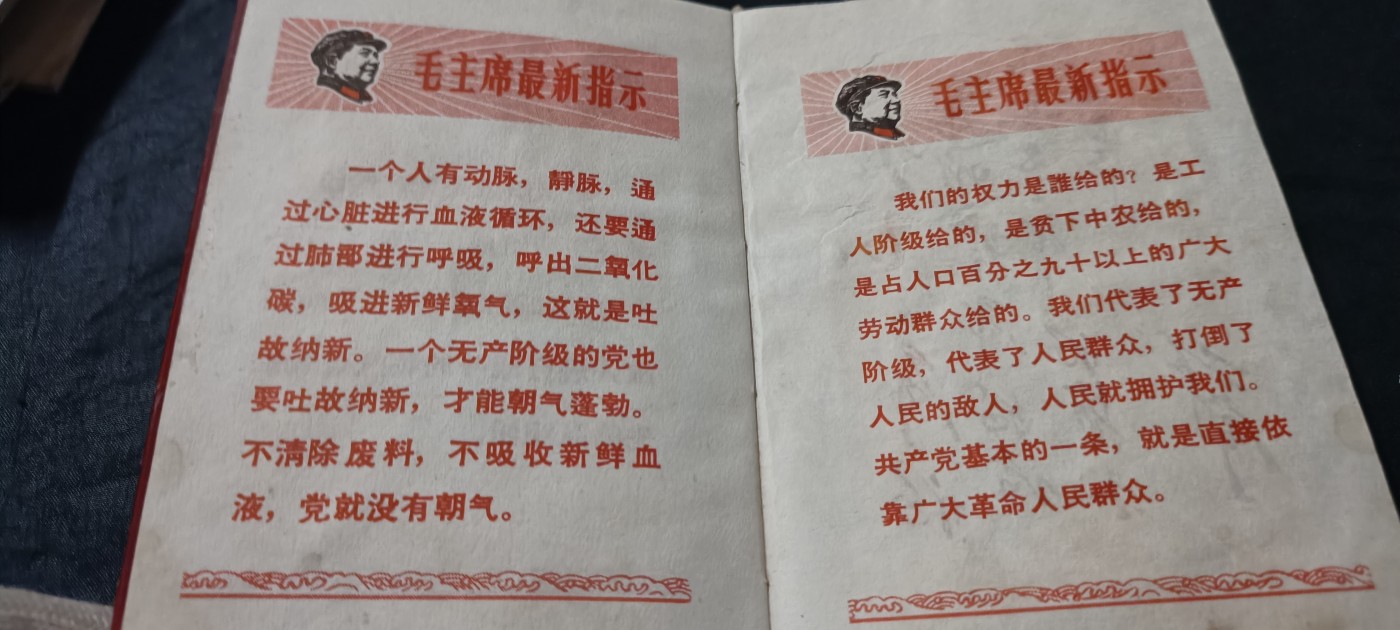 毛主席最新指示
一个人有动脉，靜脉，通
过心脏进行血液循环，还要通
过肺部进行呼吸，呼出二氧化
碳，吸进新鲜氧气，这就是吐
故纳新。一个无产阶级的党也
要吐故纳新，才能朝气蓬勃。
不清除废料，不吸收新鲜血
液，党就没有朝气。
毛主席最新指示
我们的权力是誰给的？是工
人阶级给的，是贫下中农给的，
是占人口百分之九十以上的广大
劳动群众给的。我们代表了无产
阶级，代表了人民群众，打倒了
人民的敌人，人民就拥护我们。
共产党基本的一条，就是直接依
靠广大革命人民群众。